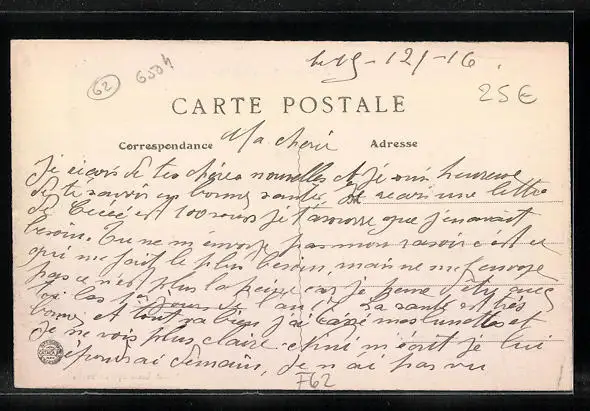 le 15-12-16
62
6534
25€
CARTE POSTALE
Correspondance Ma cherie Adresse
Je reçois de tes chères nouvelles et je suis heureuse
de te savoir en bonne santé, je reçois une lettre
de et 100 sous je t'avoue que j'en avait
besoin. Tu ne m'envoye pas mon rasoir c'est ce
qui me fait le plus besoin, mais ne me l'envoye
pas ce n'est plus la peine car je pense d'être
bas le 1er jours de l'an, sa santé est très
bonne et tout va bien j'ai mes lunettes et
je ne vois plus claire. m'écrit je lui
demain, je n'ai pas vu
F62